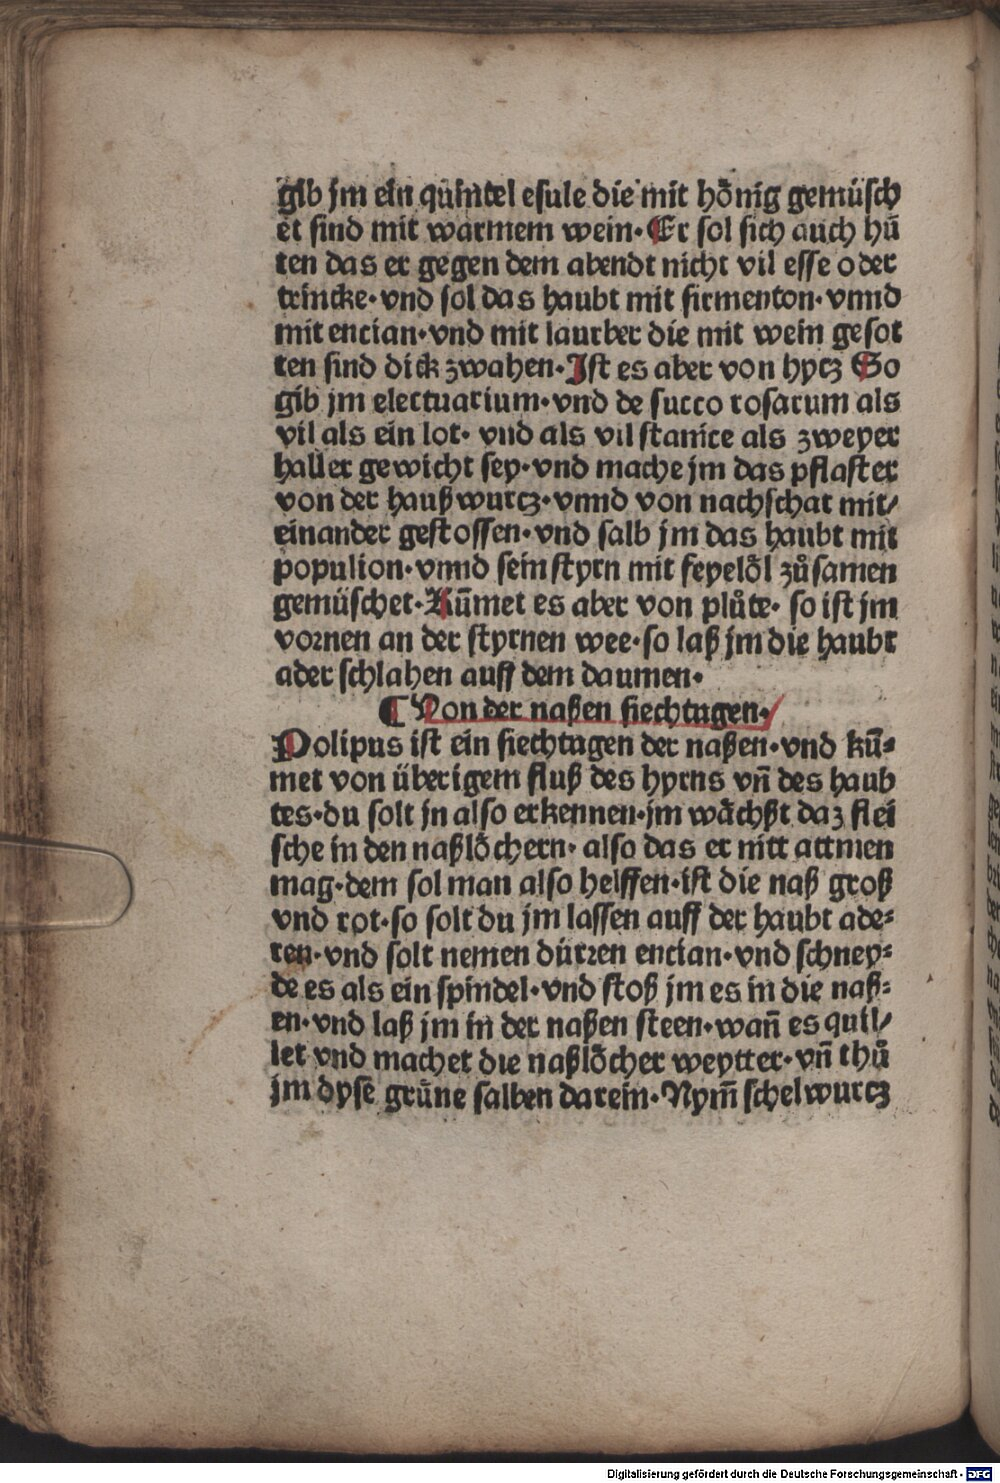 gib jm ein quintel esule die mit hoͤnig gemüſch
et ſind mit warmem wein·Er ſol ſich auch huͤ
ten das er gegen dem abendt nicht vil eſſe oder
trincke·vnd ſol das haubt mit firmenton·vnnd
mit encian·vnd mit laurber die mit wein geſot
ten ſind dick zwahen·Jſt es aber von hytz So
gib jm electuarium·vnd de ſucco roſarum als
vil als ein lot· vnd als vil ſtanice als zweyer
haller gewicht ſey·vnd mache jm das pflaſter
von der haußwurtz·vnnd von nachſchat mit/
einander geſtoſſen·vnd ſalb jm das haubt mit
populion·vnnd ſein ſtyrn mit feyeloͤl zuͦſamen
gemüſchet·Kūmet es aber von pluͦte· ſo iſt jm
vornen an der ſtyrnen wee·ſo laß jm die haubt
ader ſchlahen auff dem daumen·
¶ Von der naßen ſiechtagen·
Polipus iſt ein ſiechtagen der naßen·vnd kū⸗
met von überigem fluß des hyrns vn̄ des haub
tes·du ſolt jn alſo erkennen·jm waͤchßt daz flei
ſche in den naßloͤchern· alſo das er nitt attmen
mag·dem ſol man alſo helffen·iſt die naß groß
vnd rot·ſo ſolt du jm laſſen auff der haubt ade⸗
ren·vnd ſolt nemen dürren encian·vnd ſchney⸗
de es als ein ſpindel·vnd ſtoß jm es in die naß⸗
en·vnd laß jm in der naßen ſteen·wan̄ es quil/
let vnd machet die naßloͤcher weytter·vn̄ thuͦ
jm dyſe gruͤne ſalben darein·Nym̄ ſchelwurtz
Digitalisierung gefördert durch die Deutsche Forschungsgemeinschaft - DFG